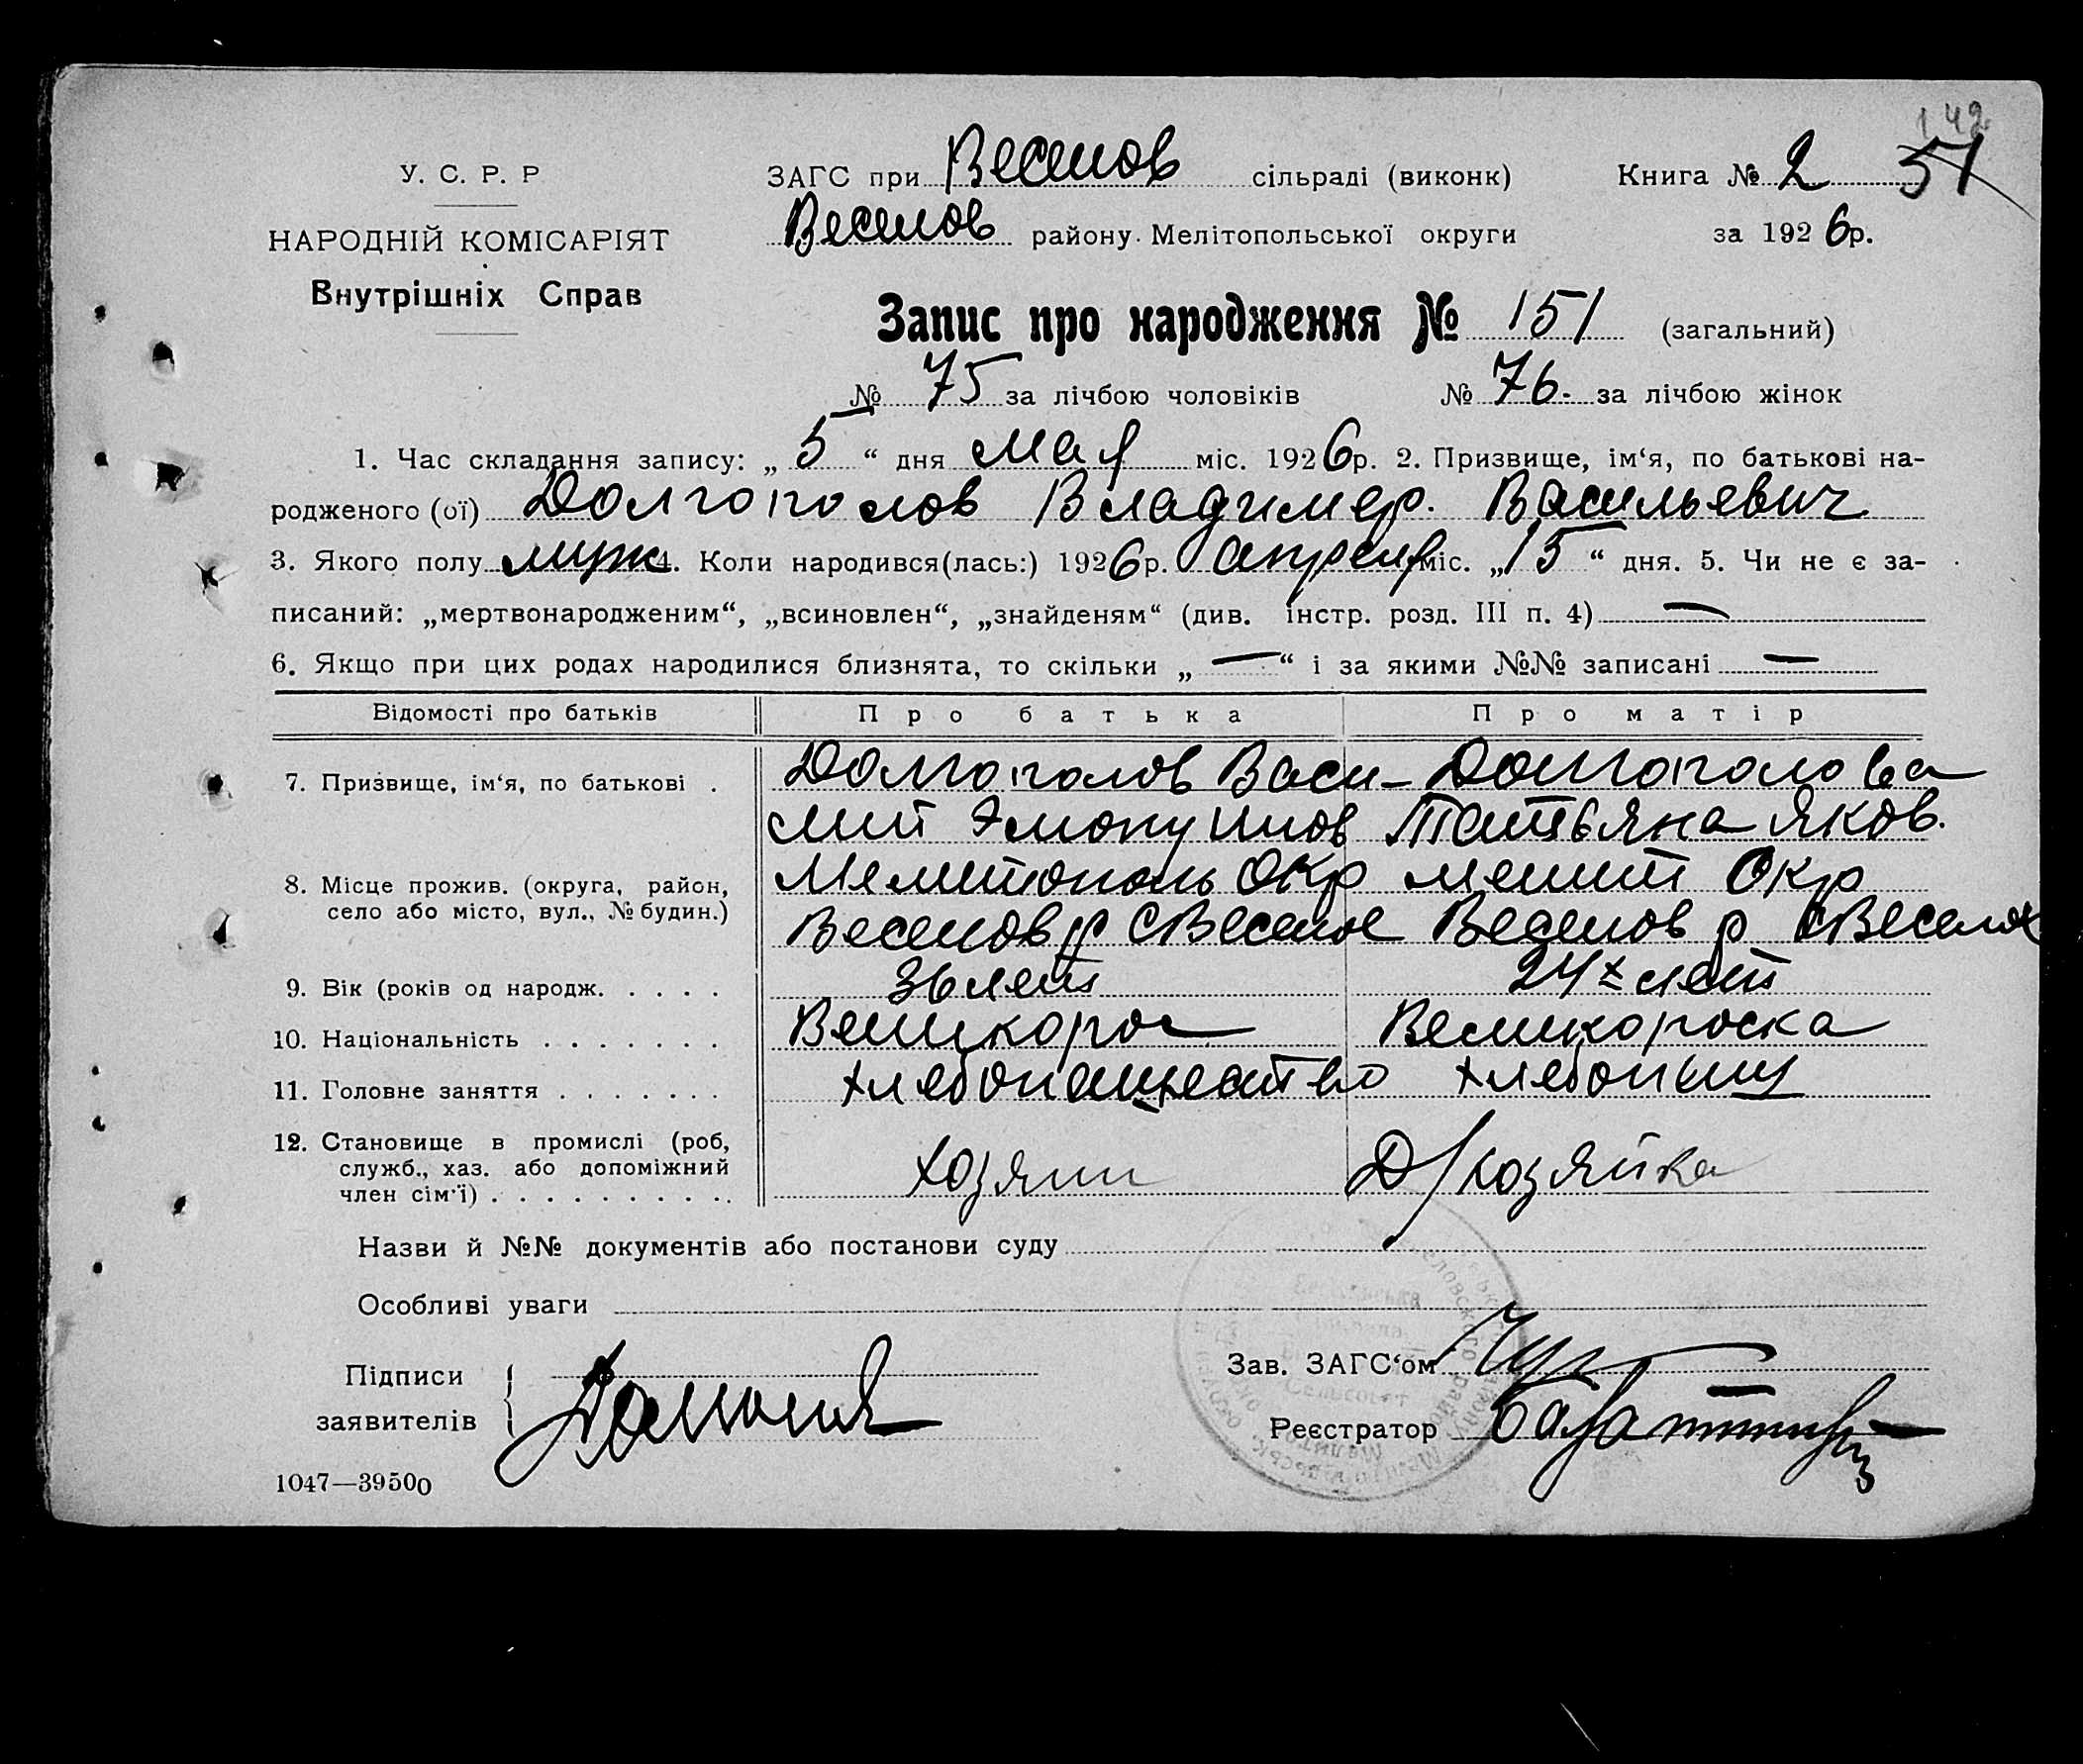 142
У. С. Р. Р
НАРОДНІЙ КОМІСАРІЯТ
Внутрішніх Справ
ЗАГС при Веселов сільраді (виконк) Книга № 2 51
Веселов району Мелітопольської округи за 1926р.
Запис про народження № 151 (загальний)
№ 75 за лічбою чоловіків № 76. за лічбою жінок
1. Час складання запису: „ 5 “ дня мая міс. 1926р. 2. Призвище, ім‘я, по батькові на-
родженого (ої) Долгополов Владимер. Васильевич
3. Якого полу муж 4. Коли народився(лась:) 1926р. апреля міс. „15“ дня. 5. Чи не є за-
писаний: „мертвонародженим“, „всиновлен“, „знайденям“ (див. інстр. розд. III п. 4) —
6. Якщо при цих родах народилися близнята, то скільки „—“ і за якими №№ записані —
Відомості про батьків Про батька Про матір
7. Призвище, ім‘я, по батькові . Долгополов Васи- Долгополова
лий Татьяна Яков.
8. Місце прожив. (округа, район, Мелитополь Окр мелит Окр
село або місто, вул., № будин.) Веселов р С Веселое Веселов р С Веселое
9. Вік (років од народж. . . . . 36 лет 24х лет
10. Національність . . . . . . . Великорос Великороска
11. Головне заняття . . . . . . . хлебопашество хлебопаш
12. Становище в промислі (роб,
служб., хаз. або допоміжний
член сім‘ї) . . . . . . . . . . хозяин Д/хозяйка
Назви й №№ документів або постанови суду
Особливі уваги
Підписи
заявителів
Зав. ЗАГС‘ом
Реєстратор
1047—39500